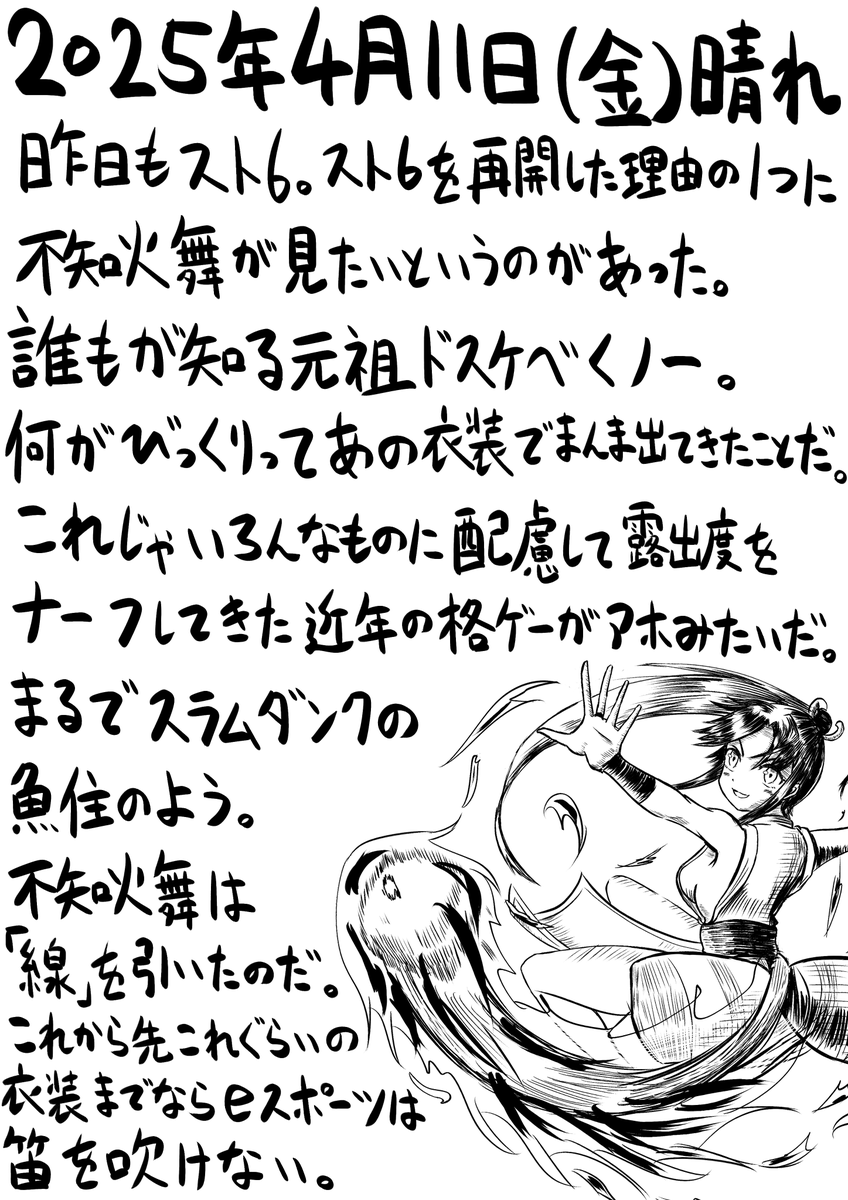 2025年4月11日(金)晴れ
昨日もスト6。スト6を再開した理由の1つに
不知火舞が見たいというのがあった。
誰もが知る元祖ドスケベくノー。
何がびっくりってあの衣装でまんま出てきたことだ。
これじゃいろんなものに配慮して露出度を
ナーフしてきた近年の格ゲーがアホみたいだ。
まるでスラムダンクの
魚住のよう。
不知火舞は
「線」を引いたのだ。
これから先これぐらいの
衣装までならeスポーツは
笛を吹けない。